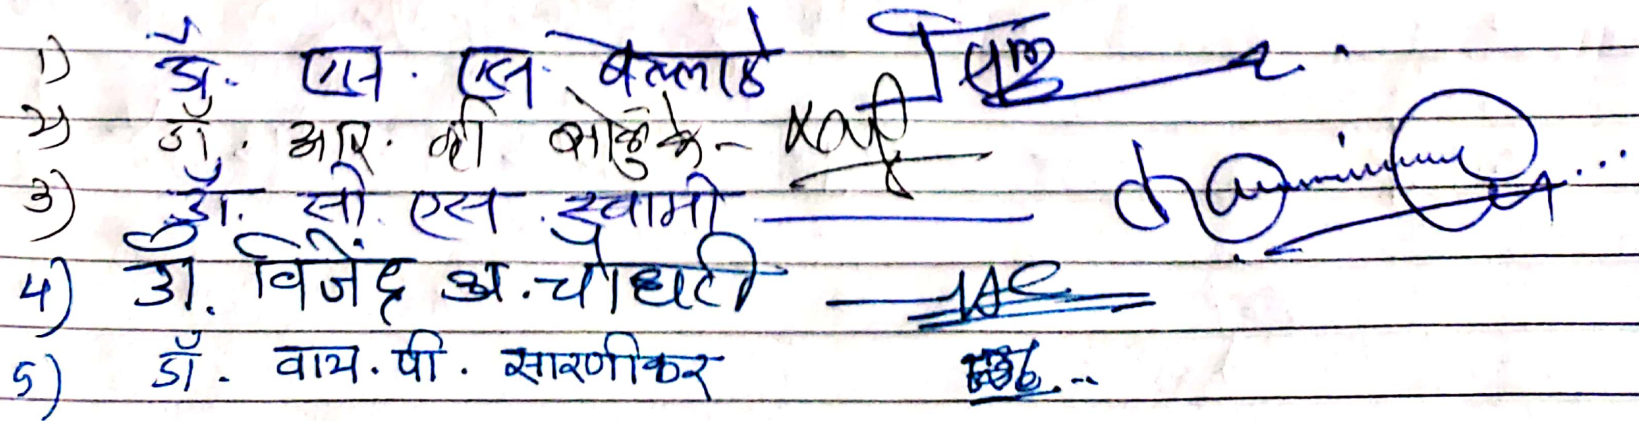 1) डॉ. एस. एस. बेल्लाळे
2) डॉ. आर. बी. सोळुंके -
3) डॉ. सी. एस. स्वामी
4) डॉ. विजेंद्र अ. चौधरी
5) डॉ. वाय. पी. सारणीकर